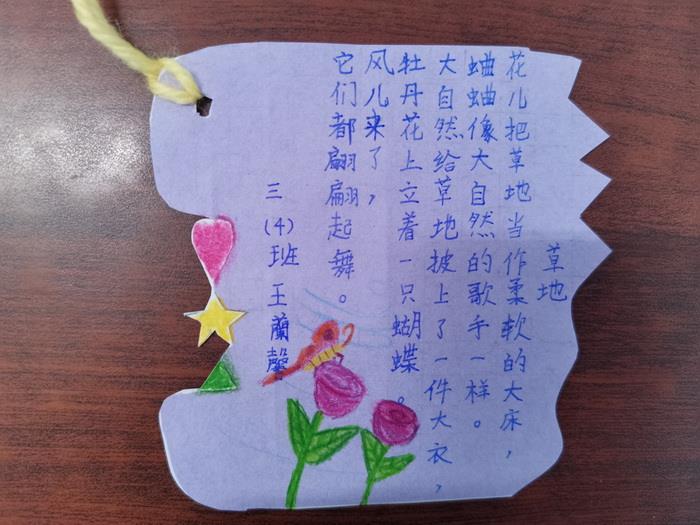 草地
花儿把草地当作柔软的大床，
蛐蛐像大自然的歌手一样。
大自然给草地披上了一件大衣，
牡丹花上立着一只蝴蝶。
风儿来了，
它们都翩翩起舞。
三(4)班 王蘭馨